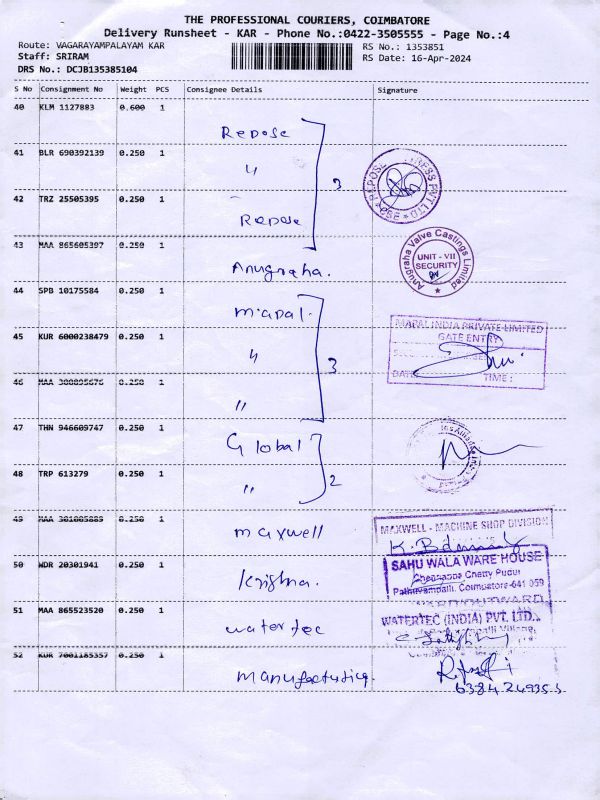 THE PROFESSIONAL COURIERS, COIMBATORE
Delivery Runsheet - KAR - Phone No.:0422-3505555 - Page No.:4
Route: VAGARAYAMPALAYAM KAR
RS No.: 1353851
Staff: SRIRAM
RS Date: 16-Apr-2024
DRS No.: DCJB135385104
S No Consignment No Weight PCS Consignee Details Signature
40 KLM 1127883 0.600 1
Repose
41 BLR 690392139 0.250 1
"
3
REPOSE PVT LTD
42 TRZ 25505395 0.250 1
Repose
43 MAA 865605397 0.250 1
Anugraha.
Anugraha Valve Castings Limited
UNIT - VII
SECURITY
44 SPB 10175584 0.250 1
Mapal.
45 KUR 6000238479 0.250 1
"
3
MAPAL INDIA PRIVATE LIMITED
GATE ENTRY
DATE TIME :
46 MAA 300895676 0.250 1
"
47 THN 946609747 0.250 1
Global
48 TRP 613279 0.250 1
"
2
49 MAA 301005889 0.250 1
maxwell
MAXWELL - MACHINE SHOP DIVISION
50 WDR 20301941 0.250 1
Krishna.
SAHU WALA WARE HOUSE
Chennappa Chetty Pudur
Pathuvampalli, Coimbatore-641 059
51 MAA 865523520 0.250 1
watertec
WATERTEC (INDIA) PVT. LTD..
52 KUR 7001185357 0.250 1
manufacturing.
6384249353